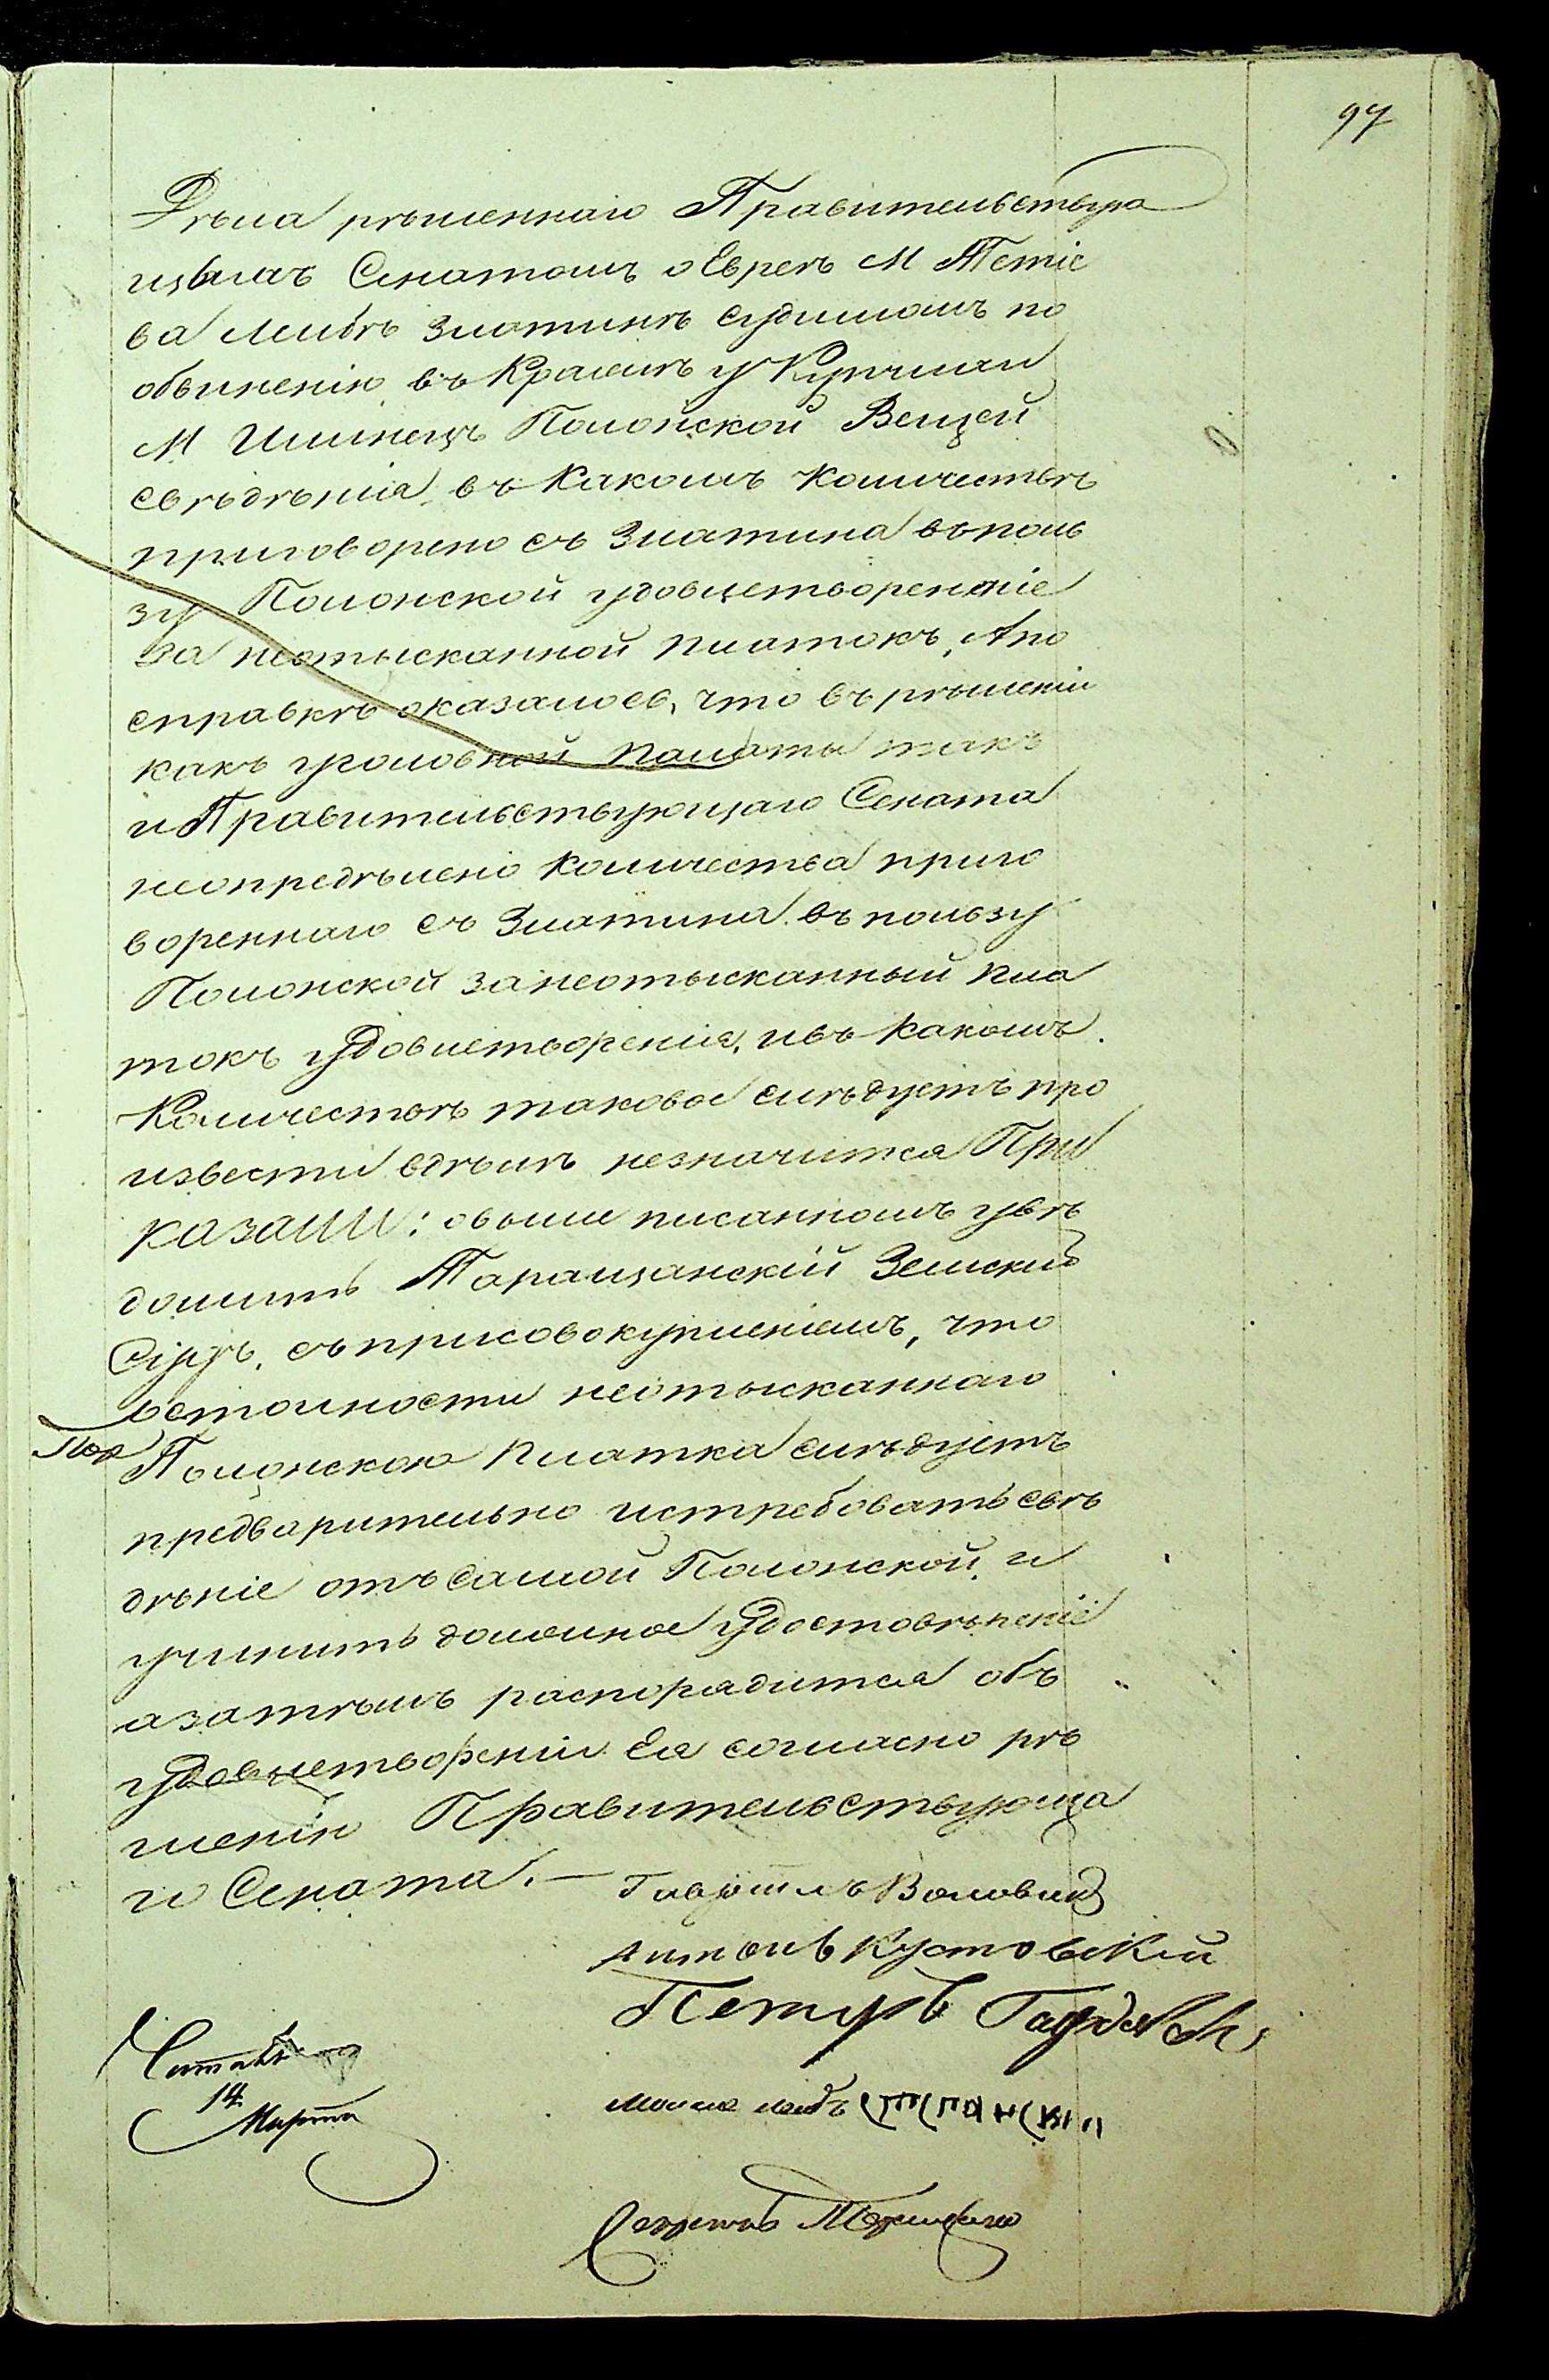 97
Дѣла рѣшеннаго Правительствую
щимъ Сенатомъ о Евреѣ М Тетіе
ва Лейбѣ Златинѣ судимомъ по
обвиненію въ Кражѣ у Купчихи
М Илинецъ Полонской Вещей
свѣдѣнія въ Какомъ Количествѣ
приговорено съ Златина въ поль
зу Полонской удовлетвореніе
за неотысканной платокъ, А по
справкѣ оказалось, что въ рѣшеніи
какъ уголовной палаты такъ
и Правительствующаго Сената
неопредѣлено Количества приго
вореннаго съ Златина въ пользу
Полонской за неотысканный пла
токъ удовлетворенія, и въ какомъ
Количествѣ таковое слѣдуетъ про
извести вдѣлѣ незначится При
казали: о выше писанномъ увѣ
домить Таращанскій Земскій
Судъ, съ присовокупленіемъ, что
о стоимости неотысканнаго
Полонскою Платка слѣдуетъ
предварительно истребовать свѣ
дѣніе отъ самой Полонской, и
учинить должное удостовѣреніе
а затѣмъ распорядится объ
удовлетвореніи Ея согласно рѣ
шенію Правительствующа
го Сената. —
Антонъ Кустовскій
Петръ
14
Марта